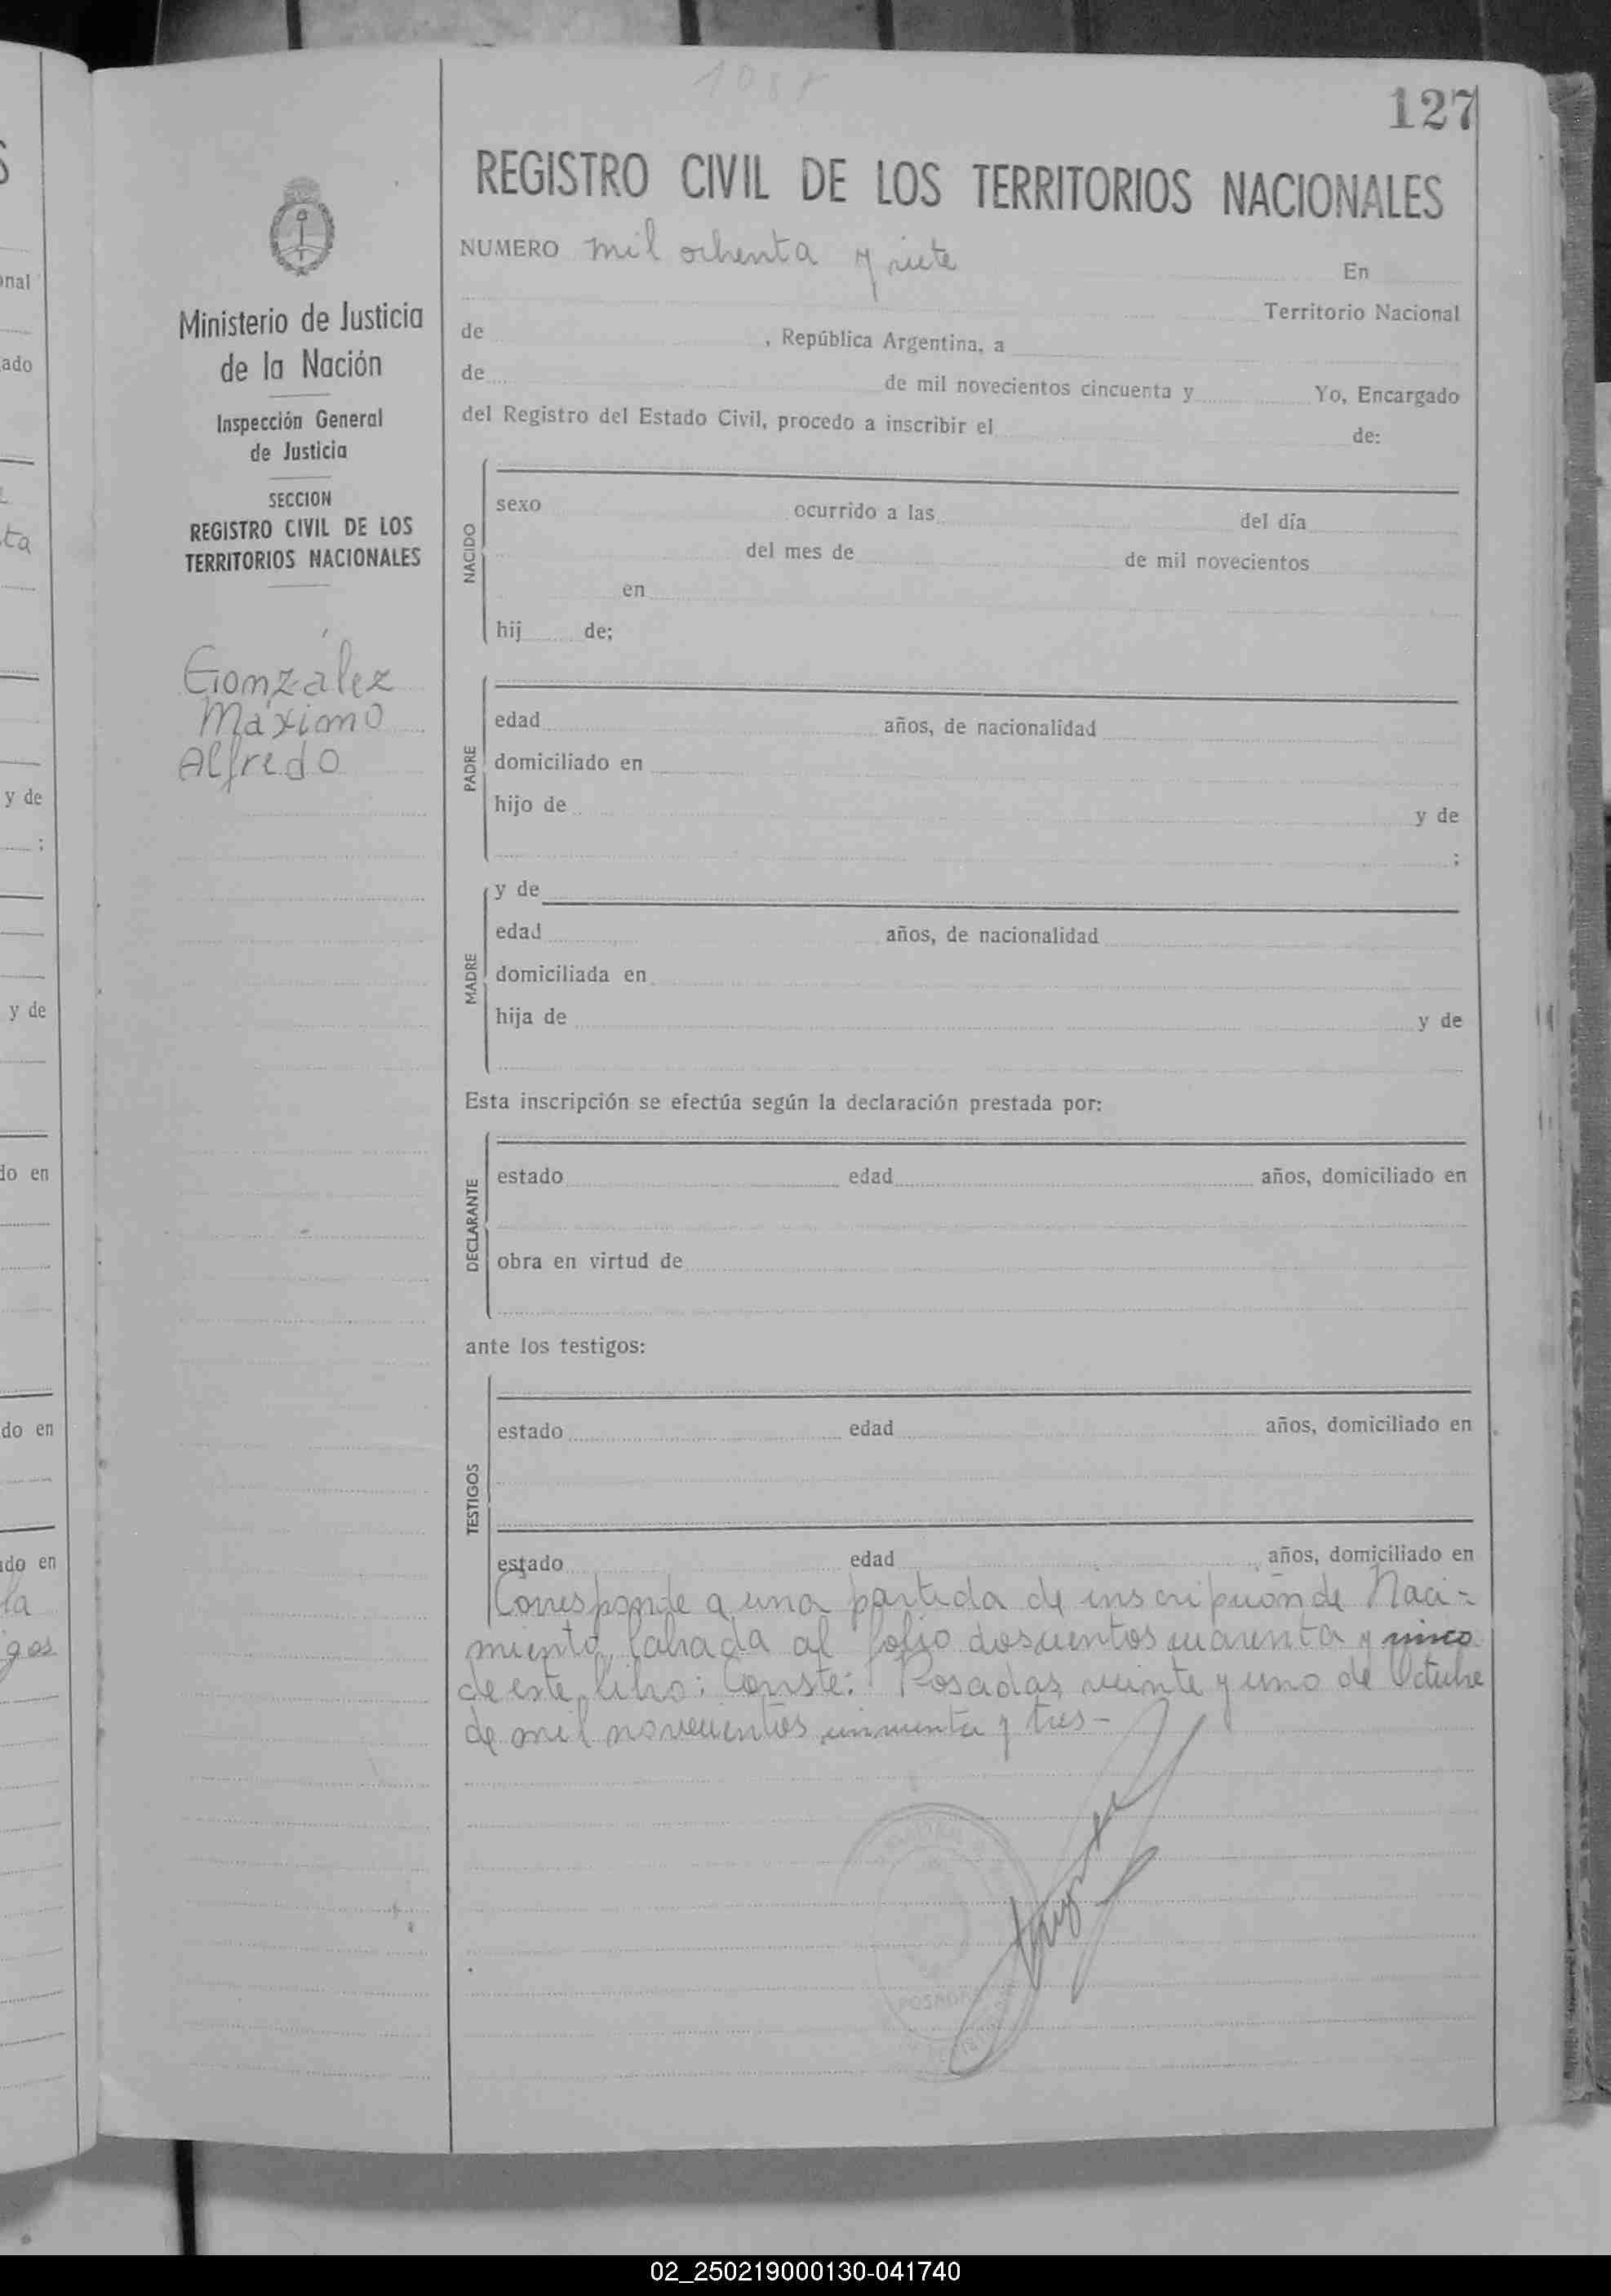 127
REGISTRO CIVIL DE LOS TERRITORIOS NACIONALES
NUMERO mil ochenta y siete En
Territorio Nacional
de , República Argentina, a
de de mil novecientos cincuenta y Yo, Encargado
del Registro del Estado Civil, procedo a inscribir el de:
Ministerio de Justicia
de la Nación
Inspección General
de Justicia
SECCION
REGISTRO CIVIL DE LOS
TERRITORIOS NACIONALES
González
Máximo
Alfredo
NACIDO
sexo ocurrido a las del día
del mes de de mil novecientos
en
hij de;
PADRE
edad años, de nacionalidad
domiciliado en
hijo de y de
;
MADRE
y de
edad años, de nacionalidad
domiciliada en
hija de y de
Esta inscripción se efectúa según la declaración prestada por:
DECLARANTE
estado edad años, domiciliado en
obra en virtud de
ante los testigos:
TESTIGOS
estado edad años, domiciliado en
estado edad años, domiciliado en
Corresponde a una partida de inscripción de Naci-
miento, labrada al folio doscientos cuarenta y cinco
de este libro: Conste: Posadas, veinte y uno de Octubre
de mil novecientos cincuenta y tres-
POSADAS
onal
ado
ta
y de
;
y de
do en
do en
ado en
la
igos
02_250219000130-041740